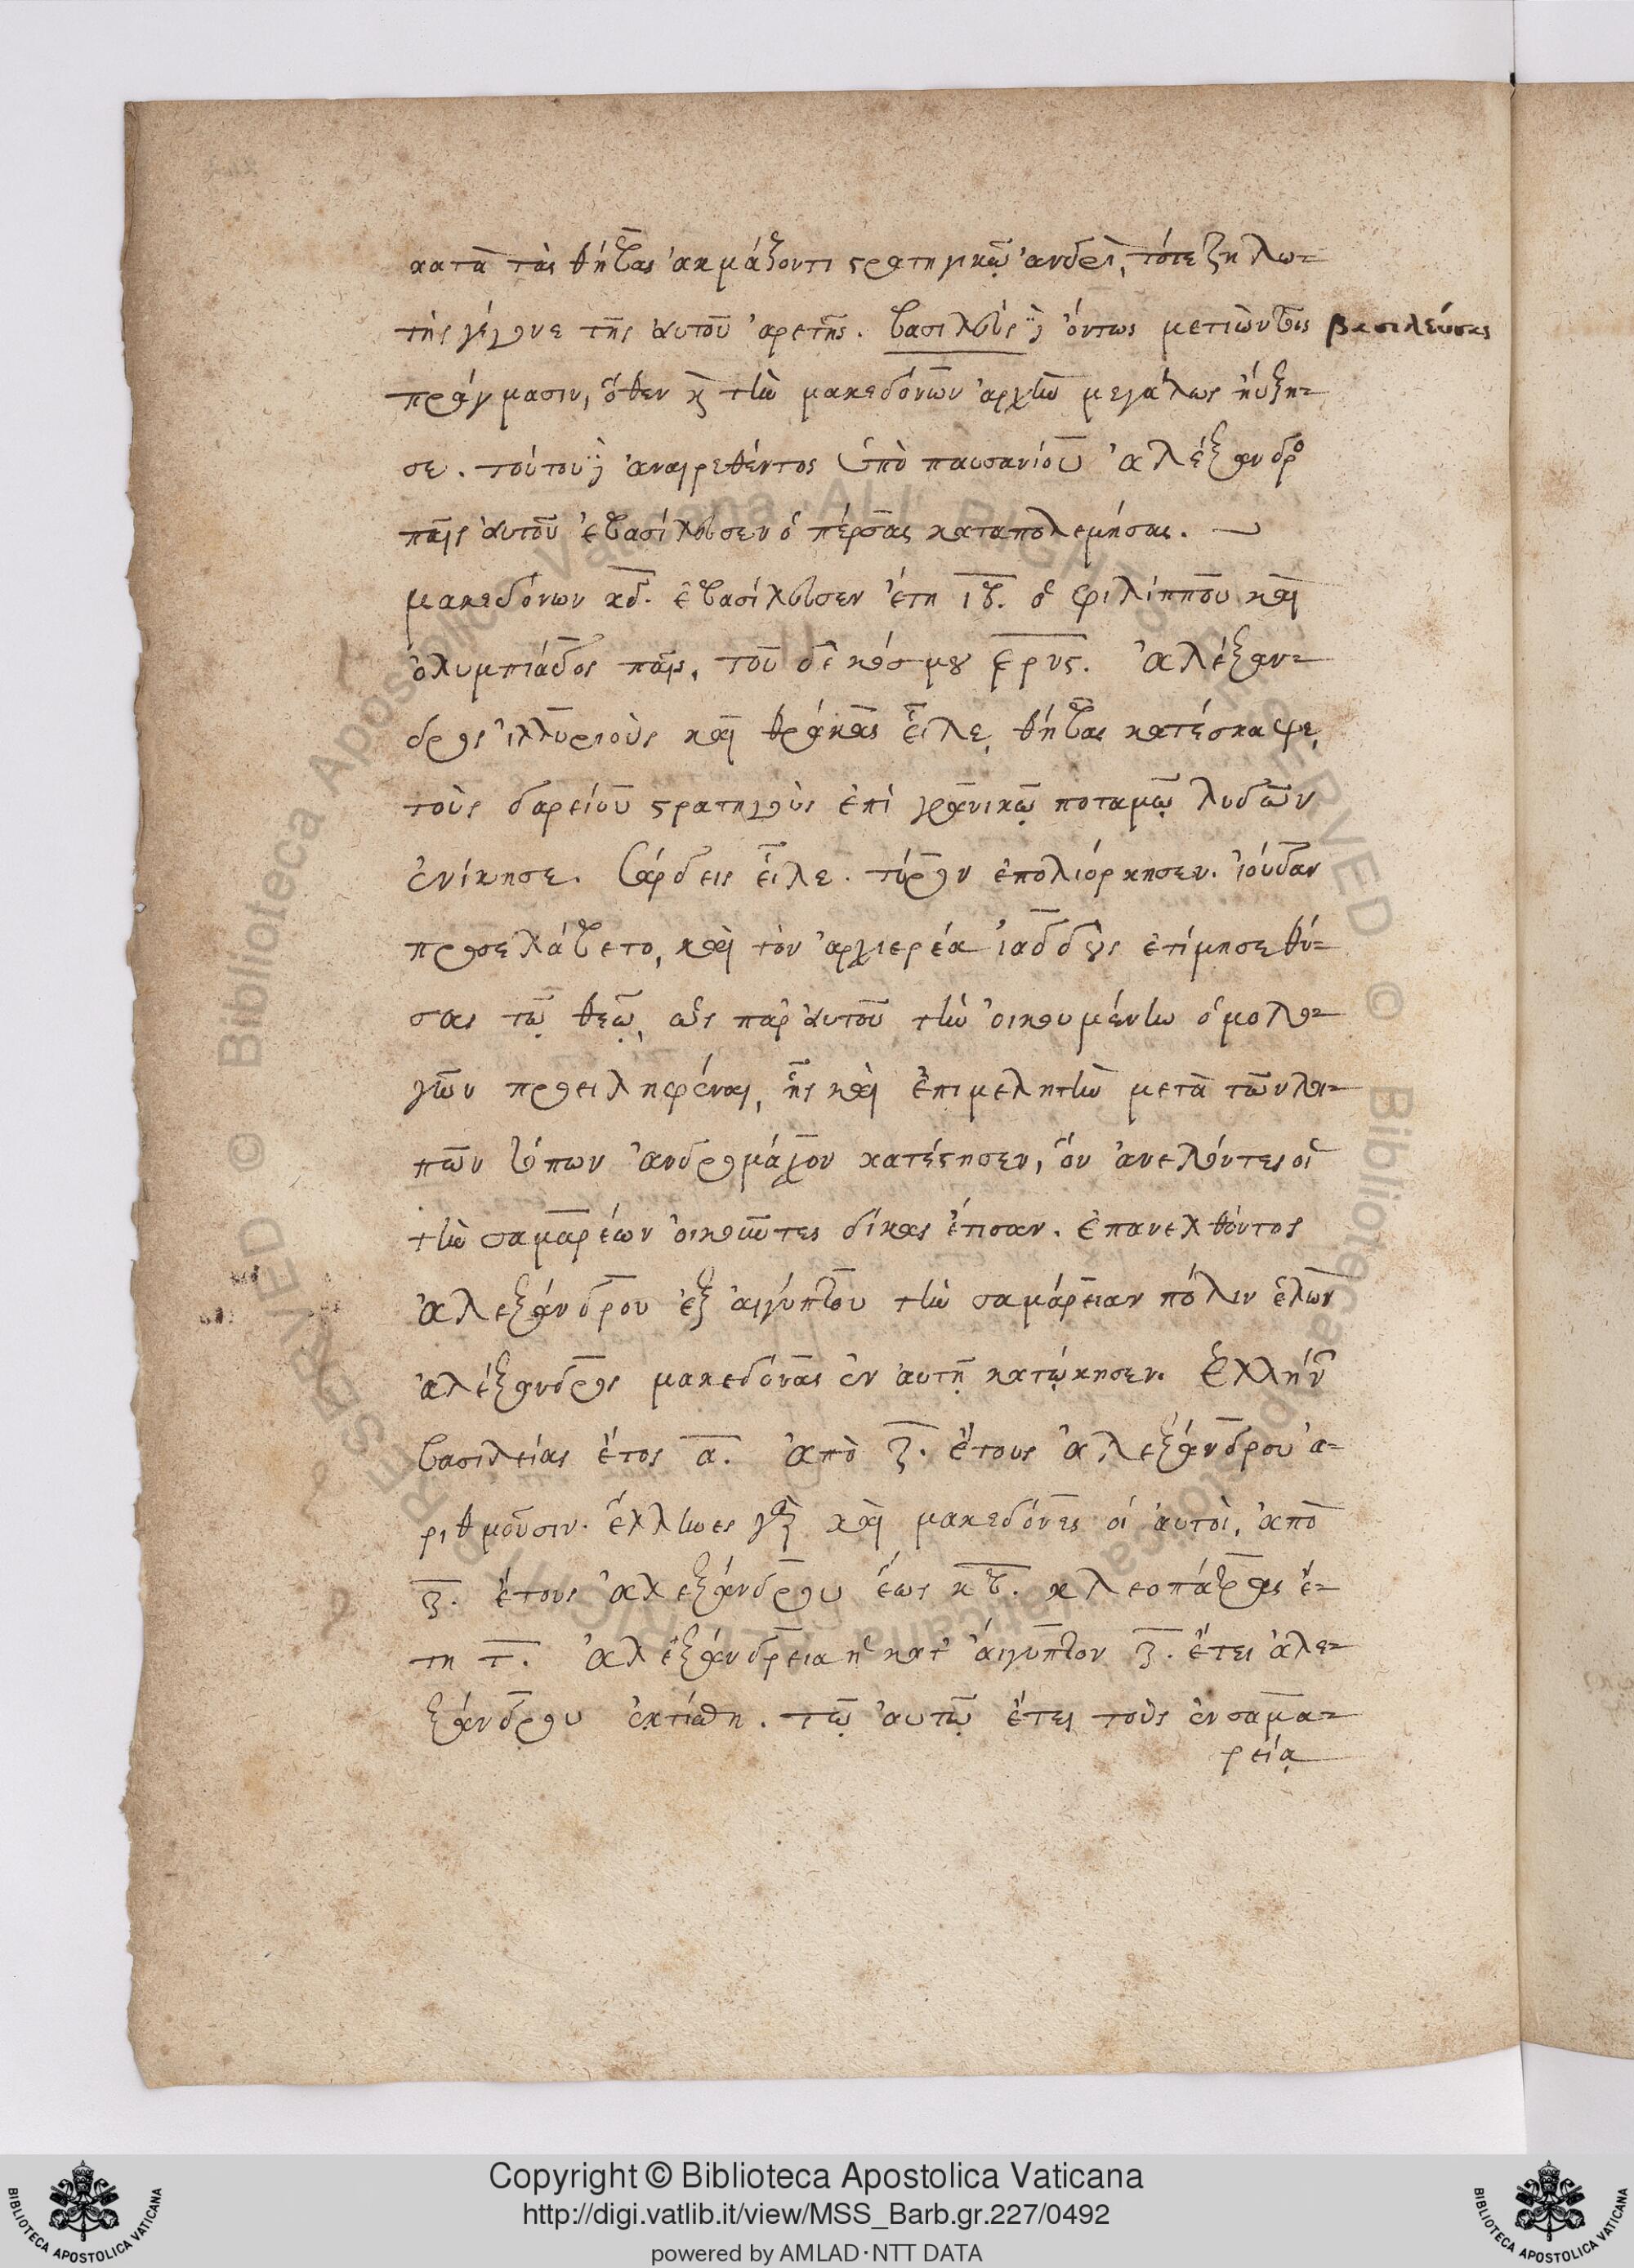 κατὰ τὰς θήβας ἀκμάζοντι στρατηγικῷ ἀνδρὶ, τότε ζηλω-
τὴς γέγονε τῆς αὐτοῦ ἀρετῆς. βασιλεὺς δὲ ὄντως μετιὼν τοῖς βασιλεύσας
πράγμασιν, ὅθεν καὶ τὴν μακεδόνων ἀρχὴν μεγάλως ηὔξη-
σε. τούτου δὲ ἀναιρεθέντος ὑπὸ παυσανίου ἀλέξανδρο
παῖς αὐτοῦ ἐβασίλευσεν ὁ πέρσας καταπολεμήσας.
μακεδόνων κδ. ἐβασίλευσεν ἔτη ιβ. ὁ φιλίππου καὶ
ὀλυμπιάδος παῖς, τοῦ δὲ κόσμου ερνς. ἀλέξαν-
δρος ἰλλυριοὺς καὶ θρᾷκας εἷλε, θήβας κατέσκαψε,
τοὺς δαρείου στρατηγοὺς ἐπὶ γρανικῷ ποταμῷ λυδῶν
ἐνίκησε. σάρδεις εἷλε. τύρον ἐπολιόρκησεν. ἰούδαν
προσελάβετο, καὶ τὸν ἀρχιερέα ἰαδδοὺς ἐτίμησε θύ-
σας τῷ θεῷ, ὡς παρ αὐτοῦ τὴν οἰκουμένην ὁμολο-
γῶν προειληφέναι, ἧς καὶ ἐπιμελητὴν μετὰ τῶν λοι-
πῶν τόπων ἀνδρομάχον κατέστησεν, ὃν ἀνελόντες οἱ
τὴν σαμαρέων οἰκοῦντες δίκας ἔτισαν. ἐπανελθόντος
ἀλεξάνδρου ἐξ αἰγύπτου τὴν σαμάρειαν πόλιν ἑλὼν
ἀλέξανδρος μακεδόνας ἐν αὐτῇ κατῴκησεν. ἑλλήν
βασιλείας ἔτος α. ἀπὸ ζ. ἔτους ἀλεξάνδρου ἀ-
ριθμοῦσιν. ἕλληνες γὰρ καὶ μακεδόνες οἱ αὐτοὶ, ἀπὸ
ζ. ἔτους ἀλεξάνδρου ἕως κβ. κλεοπάτρας ἔ-
τη τ. ἀλεξάνδρεια ἡ κατ αἴγυπτον ζ. ἔτει ἀλε-
ξάνδρου ἐκτίσθη. τῷ αὐτῷ ἔτει τοὺς ἐν σαμα-
ρείᾳ
Copyright © Biblioteca Apostolica Vaticana
http://digi.vatlib.it/view/MSS_Barb.gr.227/0492
powered by AMLAD·NTT DATA